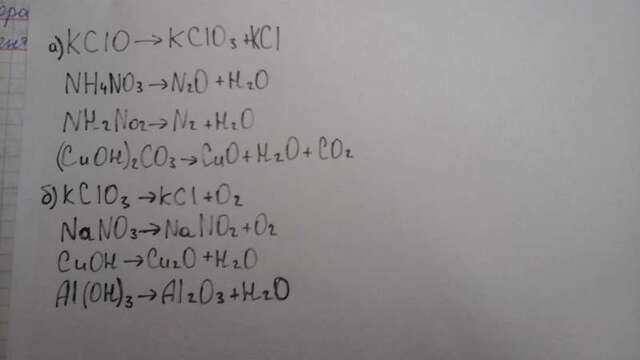 ора
а) KClO → KClO₃ + KCl
NH₄NO₃ → N₂O + H₂O
NH₂No₂ → N₂ + H₂O
(CuOH)₂CO₃ → CuO + H₂O + CO₂
б) KClO₃ → KCl + O₂
NaNO₃ → NaNO₂ + O₂
CuOH → Cu₂O + H₂O
Al(OH)₃ → Al₂O₃ + H₂O